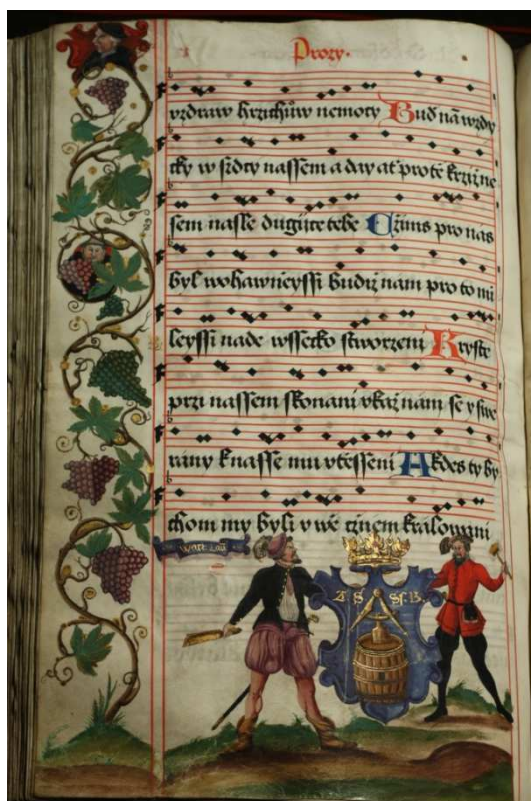 Prozy.
vzdraw hrzichůw nemoty Bud nā wzdy
tky w srdcy nassem a day at pro tě krziž ne
sem nasse dugijce tebe Czims pro nas
byl wohawnieyssi budiz nam pro to mi
leyssi nade wssecko stworzeni Kryste
przi nassem skonani vkaž nam se y swe
rany k nasse mu vtesseni A kdes ty by
chom my byli v wě cznem kralowani
Z S Sf. B